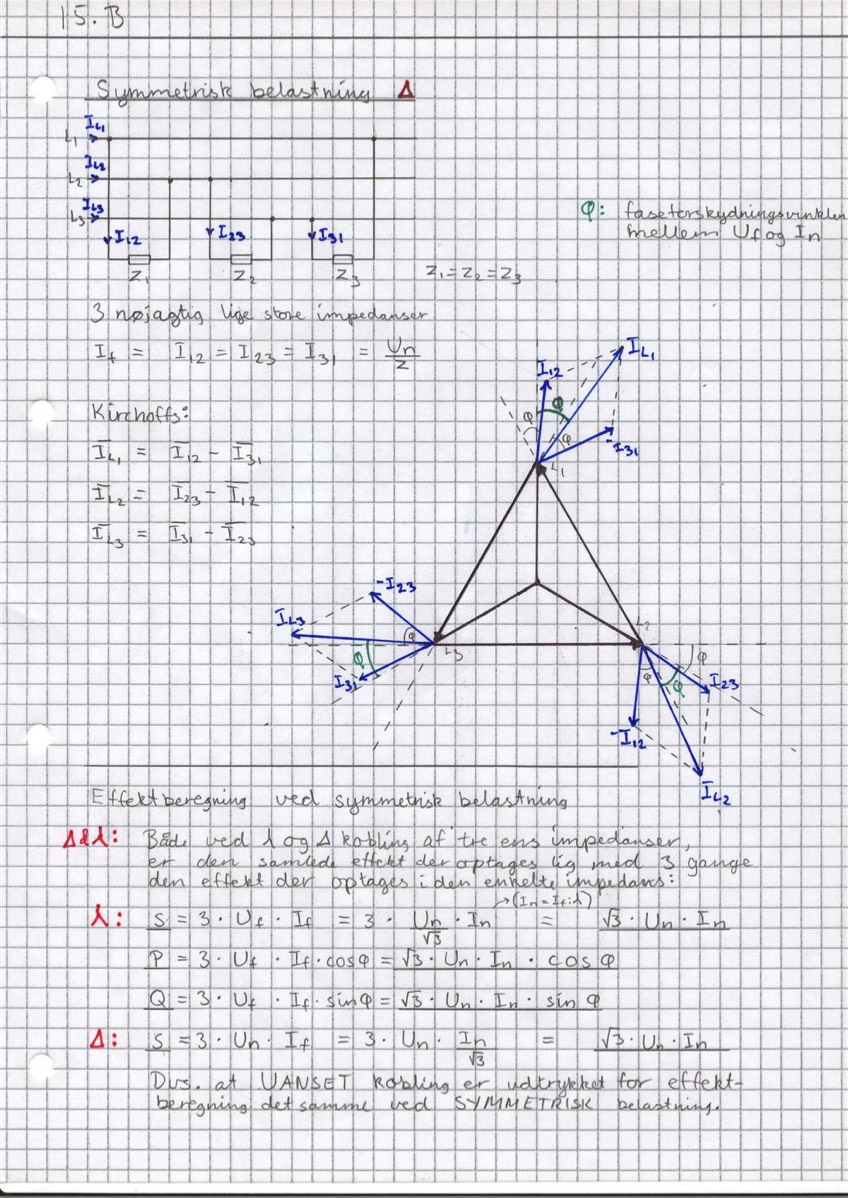 15.B
Symmetrisk belastning Δ
I_L1
L1
I_L2
L2
I_L3
L3
I12
I23
I31
Z1
Z2
Z3
Z1 = Z2 = Z3
φ: faseforskydningsvinklen
mellem Uf og In
3 nøjagtig lige store impedanser
If = I12 = I23 = I31 = Un/Z
Kirchoffs:
I̅L1 = I̅12 - I̅31
I̅L2 = I̅23 - I̅12
I̅L3 = I̅31 - I̅23
I12
IL1
φ
φ
φ
-I31
L1
-I23
IL3
φ
φ
I31
L3
L2
φ
φ
φ
I23
-I12
IL2
Effektberegning ved symmetrisk belastning
Δ&λ: Både ved λ og Δ kobling af tre ens impedanser,
er den samlede effekt der optages lig med 3 gange
den effekt der optages i den enkelte impedans:
→(In = If:λ)
λ: S = 3 · Uf · If = 3 · Un/√3 · In = √3 · Un · In
P = 3 · Uf · If · cosφ = √3 · Un · In · cos φ
Q = 3 · Uf · If · sinφ = √3 · Un · In · sin φ
Δ: S = 3 · Un · If = 3 · Un · In/√3 = √3 · Un · In
Dvs. at UANSET kobling er udtrykket for effekt-
beregning det samme ved SYMMETRISK belastning.